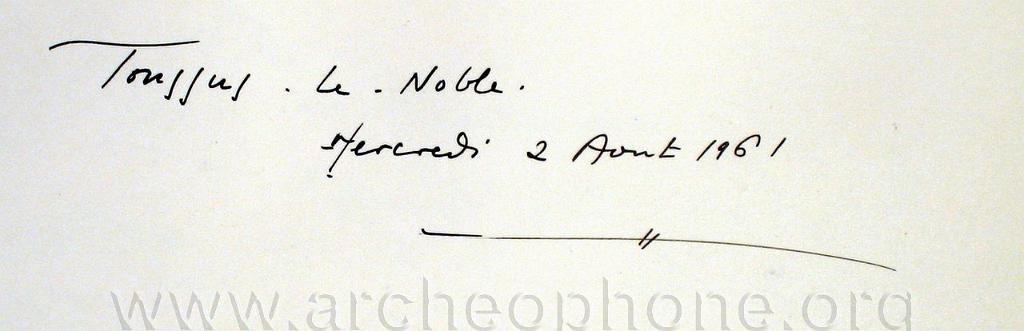 Toussus . Le . Noble .
Mercredi 2 Aout 1961
www.archeophone.org